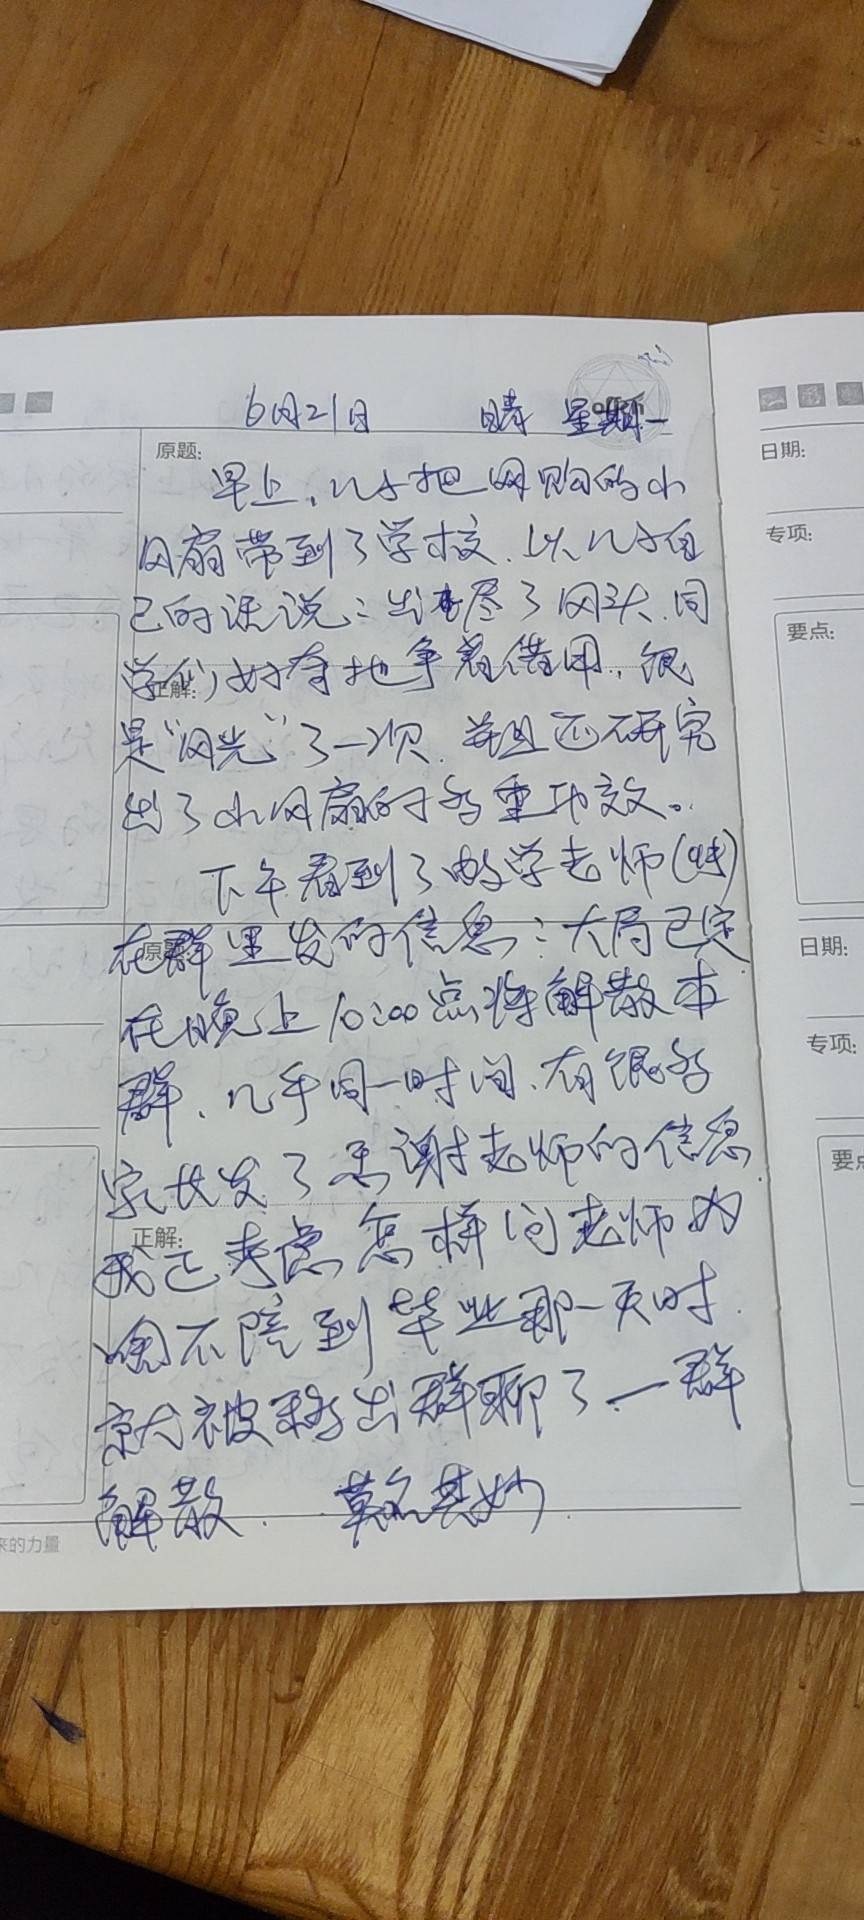 offcn
6月21日 晴 星期一
原题:
早上,儿子把网购的小
风扇带到了学校,以儿子自
己的话说:出尽了风头,同
学们好奇地争着借用,很
正解:
是“风光”了一次,并且还研究
出了小风扇的多重功效。
下午看到了数学老师
在群里发的信息:大局已定
原题:
在晚上10:00点将解散本
群,几乎同一时间,有很多
家长发了感谢老师的信息
正解:
我正考虑怎样问老师为
啥不陪到毕业那一天时,
就被移出群聊了,一群
解散, 莫名其妙
来的力量
日期:
专项:
要点:
日期:
专项:
要点